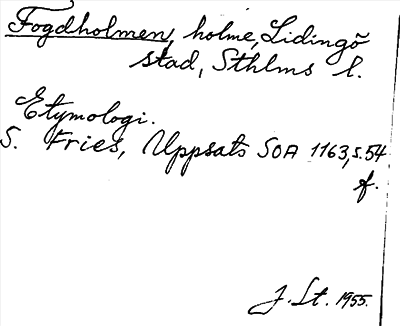 Fogdholmen, holme, Lidingö
stad, Sthlms l.
Etymologi.
S. Fries, Uppsats SOA 1163, s. 54
f.
J. Lt. 1955.